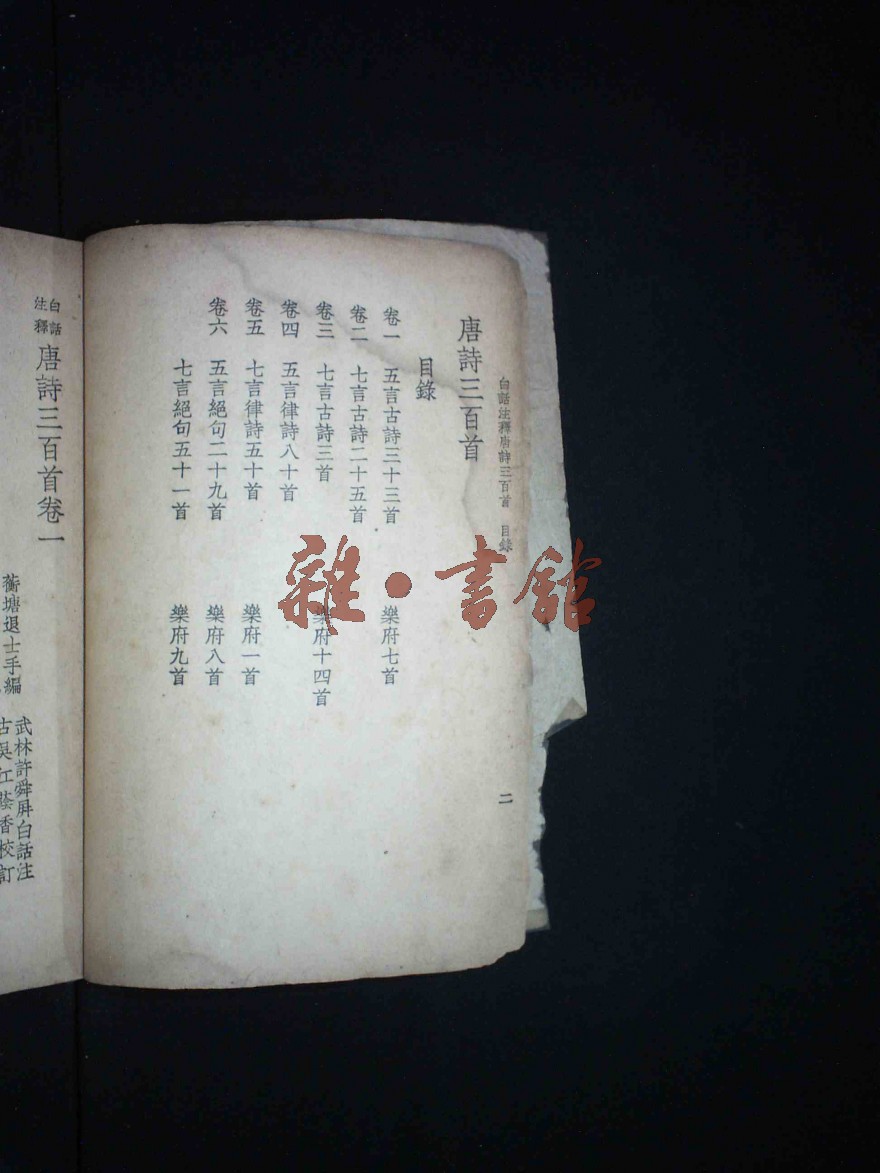 白話注釋唐詩三百首 目錄
二
唐詩三百首
目錄
卷一 五言古詩三十三首 樂府七首
卷二 七言古詩二十五首
卷三 七言古詩三首 樂府十四首
卷四 五言律詩八十首
卷五 七言律詩五十首 樂府一首
卷六 五言絕句二十九首 樂府八首
七言絕句五十一首 樂府九首
雜·書館
白話注釋 唐詩三百首卷一
蘅塘退士手編
武林許舜屏白話注
古吳江蔭香校訂